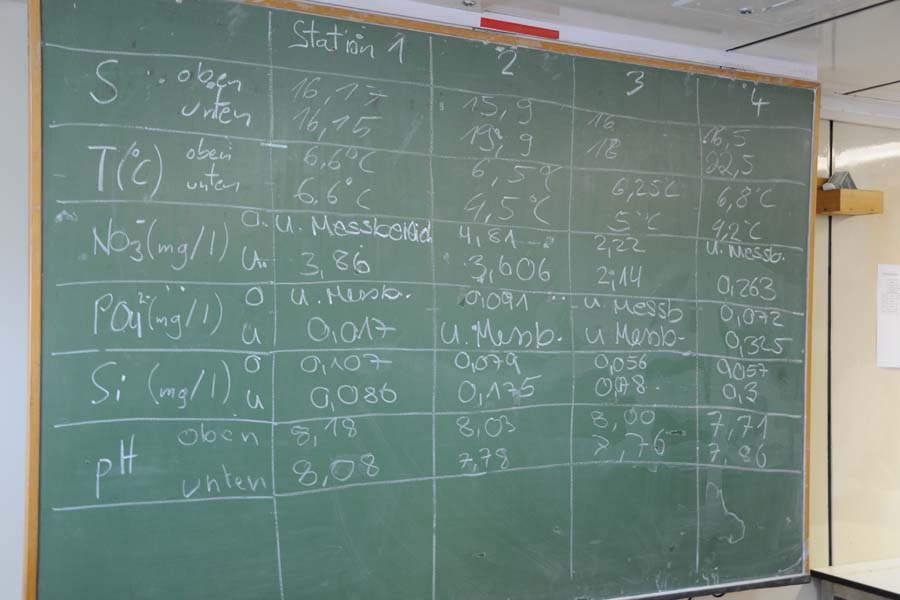 Station 1 2 3 4
S oben 16,17 15,9 16 16,5
unten 16,15 19,9 18 22,5
T(°C) oben 6,6°C 6,5°C 6,25C 6,8°C
unten 6,6°C 4,5°C 5°C 4,2°C
NO3-(mg/l) o. u. Messbereich 4,81 2,22 u. Messb.
u. 3,86 3,606 2,14 0,263
PO4 2-(mg/l) o u. Messb. 0,091 u. Messb 0,072
u 0,017 u. Messb. u Messb. 0,325
Si (mg/l) o 0,107 0,079 0,056 0,057
u 0,086 0,175 0,3
pH oben 8,18 8,03 8,00 7,71
unten 8,08 7,78 7,76